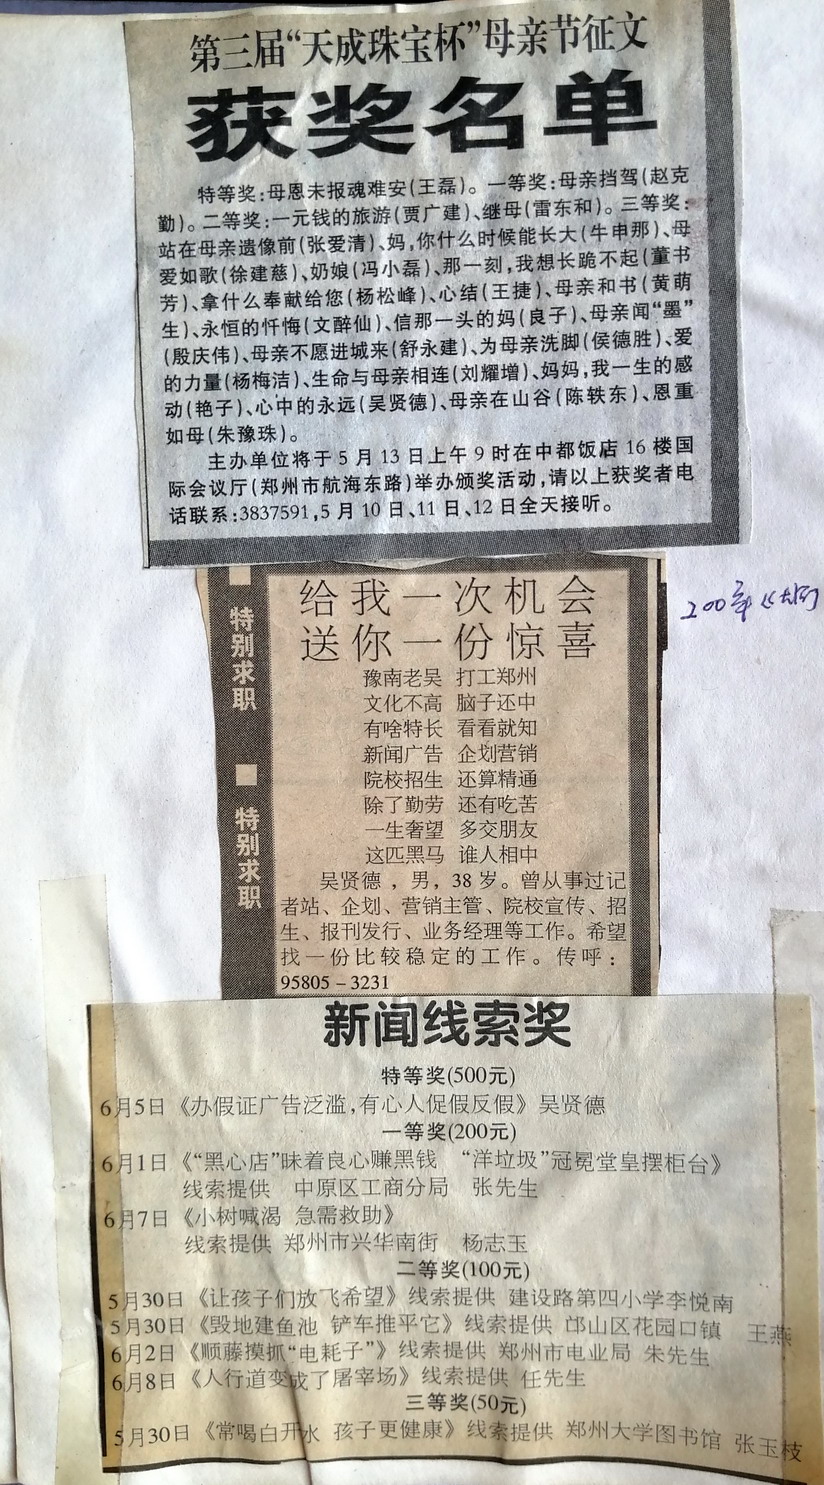 第三届“天成珠宝杯”母亲节征文
获奖名单
特等奖:母恩未报魂难安(王磊)。一等奖:母亲挡驾(赵克
勤)。二等奖:一元钱的旅游(贾广建)、继母(雷东和)。三等奖:
站在母亲遗像前(张爱清)、妈,你什么时候能长大(牛申那)、母
爱如歌(徐建慈)、奶娘(冯小磊)、那一刻,我想长跪不起(董书
芳)、拿什么奉献给您(杨松峰)、心结(王捷)、母亲和书(黄萌
生)、永恒的忏悔(文醉仙)、信那一头的妈(良子)、母亲闻“墨”
(殷庆伟)、母亲不愿进城来(舒永建)、为母亲洗脚(侯德胜)、爱
的力量(杨梅洁)、生命与母亲相连(刘耀增)、妈妈,我一生的感
动(艳子)、心中的永远(吴贤德)、母亲在山谷(陈轶东)、恩重
如母(朱豫珠)。
主办单位将于5月13日上午9时在中都饭店16楼国
际会议厅(郑州市航海东路)举办颁奖活动,请以上获奖者电
话联系:3837591,5月10日、11日、12日全天接听。
特别求职
特别求职
给我一次机会
送你一份惊喜
豫南老吴 打工郑州
文化不高 脑子还中
有啥特长 看看就知
新闻广告 企划营销
院校招生 还算精通
除了勤劳 还有吃苦
一生奢望 多交朋友
这匹黑马 谁人相中
吴贤德，男，38岁。曾从事过记
者站、企划、营销主管、院校宣传、招
生、报刊发行、业务经理等工作。希望
找一份比较稳定的工作。传呼：
95805－3231
新闻线索奖
特等奖(500元)
6月5日《办假证广告泛滥,有心人促假反假》吴贤德
一等奖(200元)
6月1日《“黑心店”昧着良心赚黑钱 “洋垃圾”冠冕堂皇摆柜台》
线索提供 中原区工商分局 张先生
6月7日《小树喊渴 急需救助》
线索提供 郑州市兴华南街 杨志玉
二等奖(100元)
5月30日《让孩子们放飞希望》线索提供 建设路第四小学李悦南
5月30日《毁地建鱼池 铲车推平它》线索提供 邙山区花园口镇 王燕
6月2日《顺藤摸抓“电耗子”》线索提供 郑州市电业局 朱先生
6月8日《人行道变成了屠宰场》线索提供 任先生
三等奖(50元)
5月30日《常喝白开水 孩子更健康》线索提供 郑州大学图书馆 张玉枝